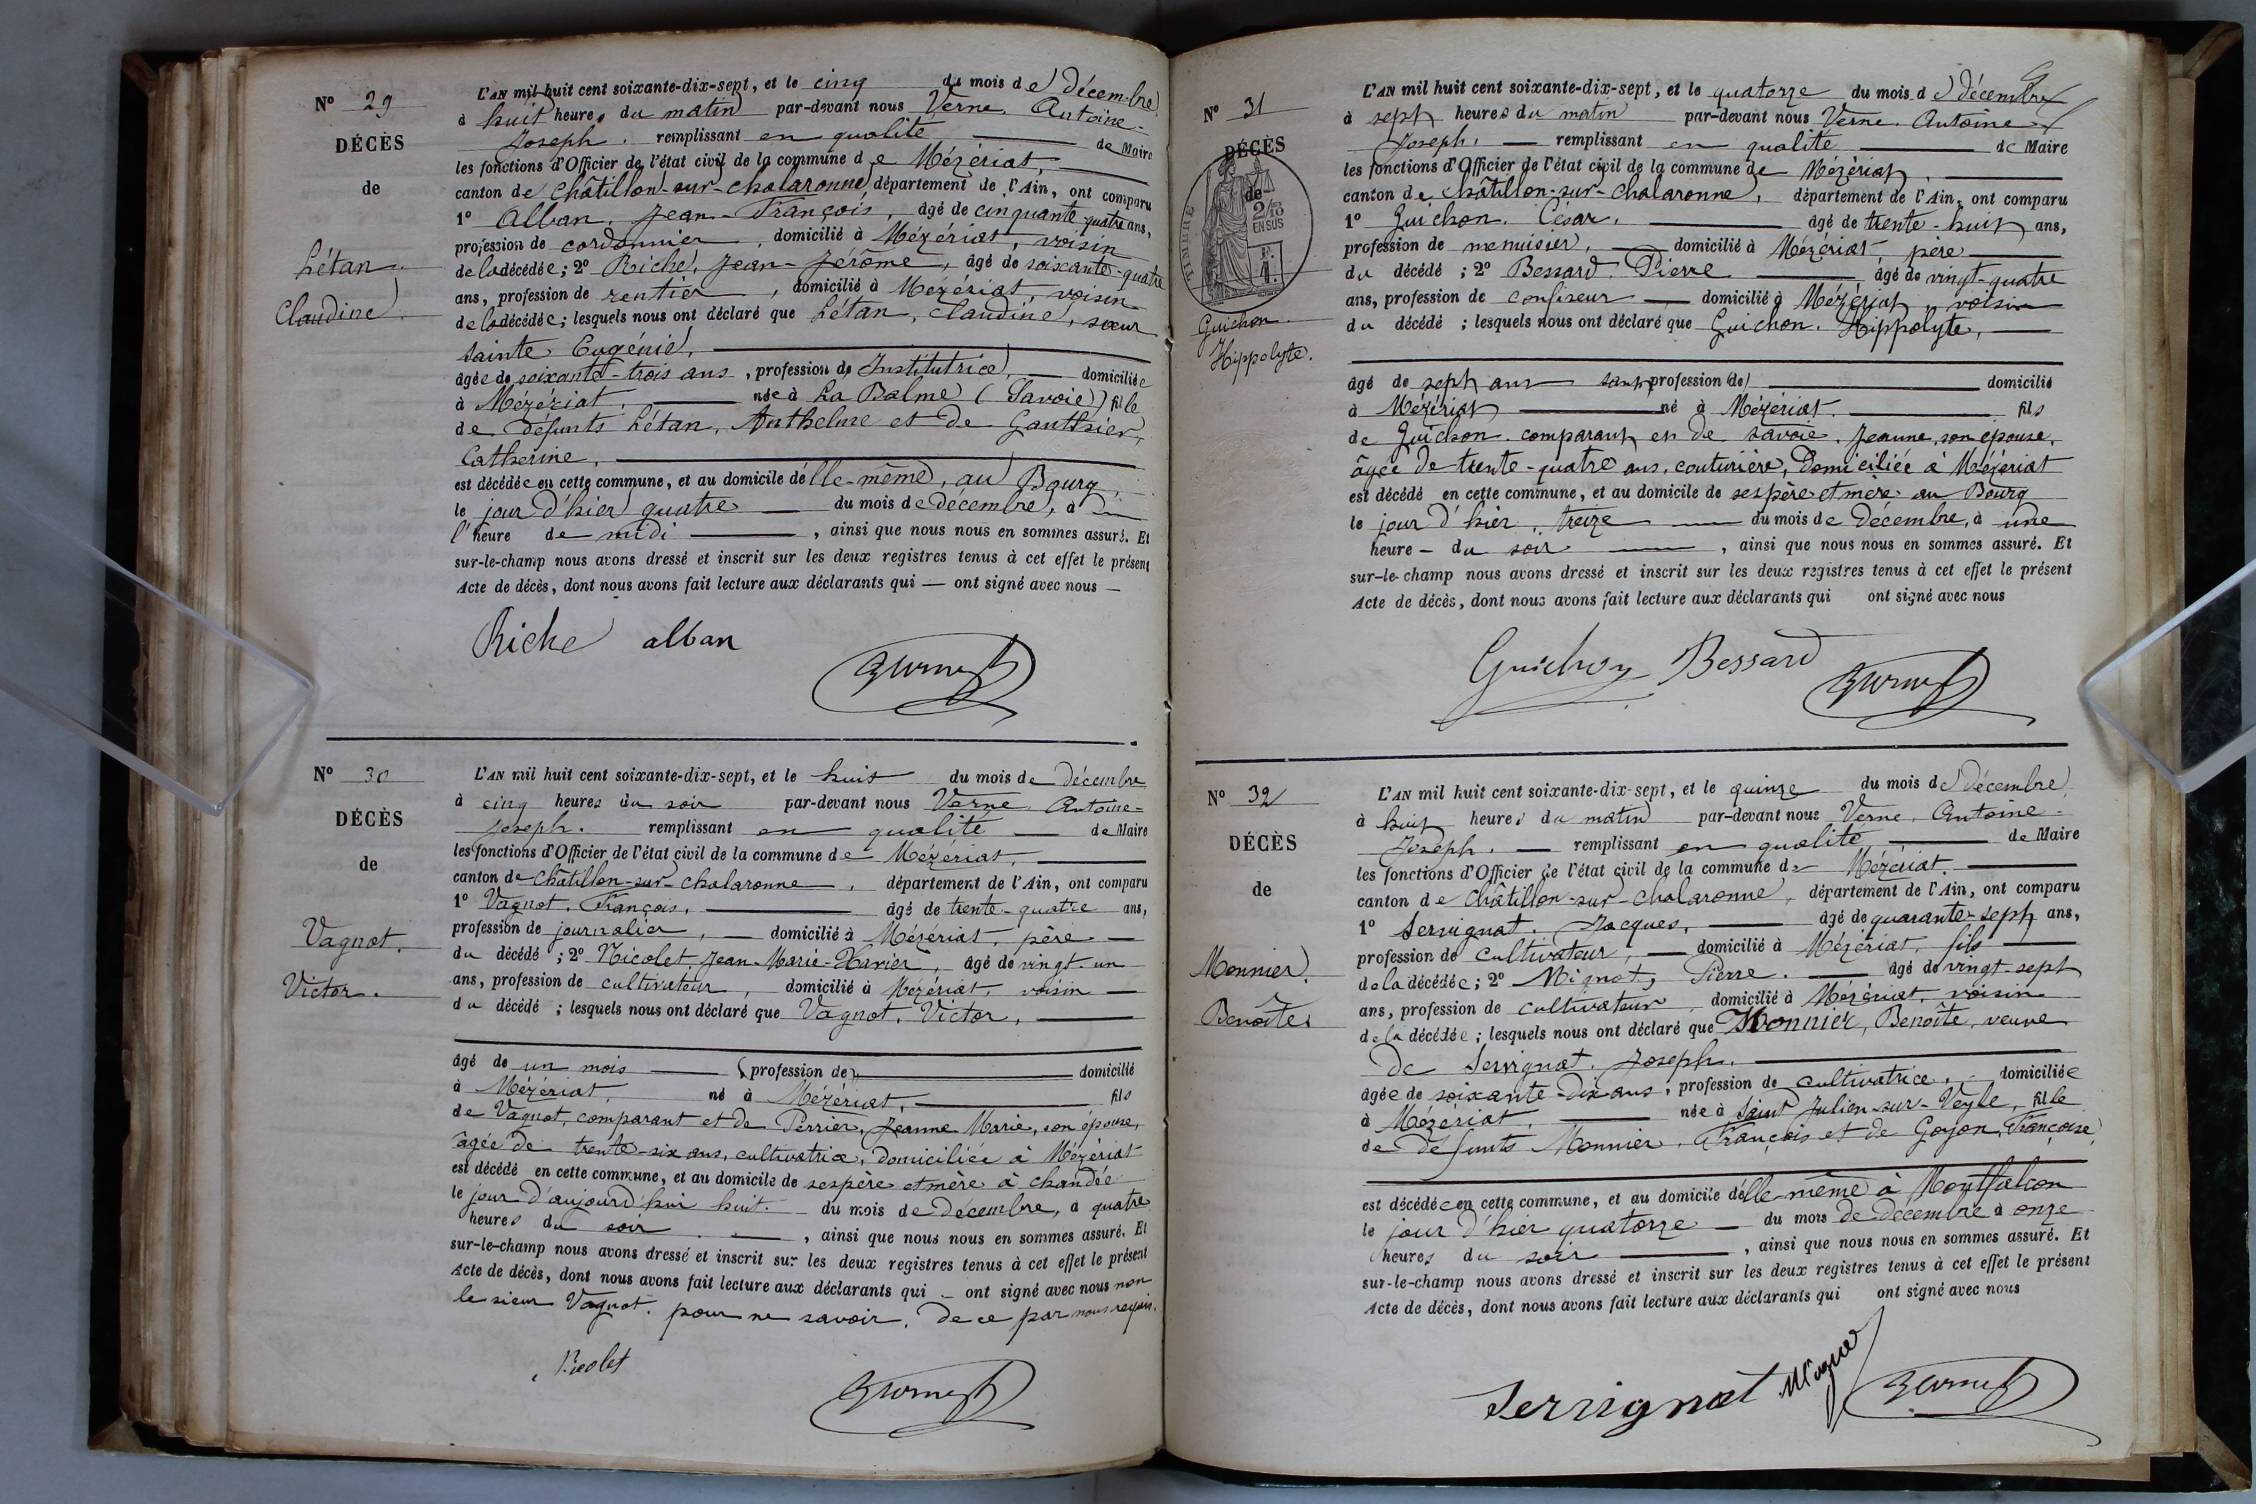 N° 29
DÉCÈS
de
Létan
Claudine
L'AN mil huit cent soixante-dix-sept, et le cinq du mois de décembre
à huit heures du matin par-devant nous Verne, Antoine-
Joseph. remplissant en qualité de Maire
les fonctions d'Officier de l'état civil de la commune de Mézériat,
canton de Châtillon-sur-Chalaronne, département de l'Ain, ont comparu
1° Alban, Jean-François, âgé de cinquante quatre ans,
profession de cordonnier, domicilié à Mézériat, voisin
de la décédée; 2° Riche, Jean-Jérôme, âgé de soixante-quatre
ans, profession de rentier, domicilié à Mézériat voisin
de la décédée; lesquels nous ont déclaré que Létan, Claudine, sœur
Sainte Eugénie,
âgée de soixante-trois ans, profession de Institutrice, domiciliée
à Mézériat, née à La Balme (Savoie) fille
de défunts Létan, Anthelme et de Gauthier,
Catherine,
est décédée en cette commune, et au domicile d'elle-même, au Bourg,
le jour d'hier quatre du mois de décembre, à
l'heure de midi, ainsi que nous nous en sommes assuré. Et
sur-le-champ nous avons dressé et inscrit sur les deux registres tenus à cet effet le présent
Acte de décès, dont nous avons fait lecture aux déclarants qui — ont signé avec nous —
Riche alban
Verne
N° 30
DÉCÈS
de
Vagnot.
Victor.
L'AN mil huit cent soixante-dix-sept, et le huit du mois de décembre
à cinq heures du soir par-devant nous Verne Antoine-
Joseph. remplissant en qualité de Maire
les fonctions d'Officier de l'état civil de la commune de Mézériat,
canton de Châtillon-sur-Chalaronne, département de l'Ain, ont comparu
1° Vagnot, François, âgé de trente-quatre ans,
profession de journalier, domicilié à Mézériat, père
du décédé; 2° Nicolet, Jean-Marie-Xavier, âgé de vingt-un
ans, profession de cultivateur, domicilié à Mézériat, voisin
du décédé; lesquels nous ont déclaré que Vagnot, Victor,
âgé de un mois (profession de) domicilié
à Mézériat, né à Mézériat, fils
de Vagnot, comparant et de Perrier, Jeanne Marie, son épouse,
âgée de trente-six ans, cultivatrice, domiciliée à Mézériat
est décédé en cette commune, et au domicile de ses père et mère à Chandée
le jour d'aujourd'hui huit. du mois de décembre, à quatre
heures du soir, ainsi que nous nous en sommes assuré. Et
sur-le-champ nous avons dressé et inscrit sur les deux registres tenus à cet effet le présent
Acte de décès, dont nous avons fait lecture aux déclarants qui — ont signé avec nous non
le sieur Vagnot. pour ne savoir, de ce par nous requis.
Nicolet
Verne
N° 31
DÉCÈS
de
TIMBRE
2/10
EN SUS
Guichon
Hippolyte.
L'AN mil huit cent soixante-dix-sept, et le quatorze du mois de décembre
à sept heures du matin par-devant nous Verne. Antoine-
Joseph. — remplissant en qualité de Maire
les fonctions d'Officier de l'état civil de la commune de Mézériat,
canton de Châtillon-sur-Chalaronne, département de l'Ain, ont comparu
1° Guichon. César. âgé de trente-huit ans,
profession de menuisier, domicilié à Mézériat, père
du décédé; 2° Bessard. Pierre âgé de vingt-quatre
ans, profession de confiseur domicilié à Mézériat, voisin
du décédé; lesquels nous ont déclaré que Guichon. Hippolyte,
âgé de sept ans sans profession (de) domicilié
à Mézériat né à Mézériat. fils
de Guichon. comparant, et de Savoie. Jeanne, son épouse,
âgée de trente-quatre ans, couturière, domiciliée à Mézériat
est décédé en cette commune, et au domicile de ses père et mère au Bourg
le jour d'hier, treize du mois de décembre, à une
heure — du soir, ainsi que nous nous en sommes assuré. Et
sur-le-champ nous avons dressé et inscrit sur les deux registres tenus à cet effet le présent
Acte de décès, dont nous avons fait lecture aux déclarants qui ont signé avec nous
Guichon Bessard
Verne
N° 32
DÉCÈS
de
Monnier
Benoîte
L'AN mil huit cent soixante-dix-sept, et le quinze du mois de décembre
à huit heures du matin par-devant nous Verne, Antoine-
Joseph. — remplissant en qualité de Maire
les fonctions d'Officier de l'état civil de la commune de Mézériat.
canton de Châtillon-sur-Chalaronne, département de l'Ain, ont comparu
1° Servignat. Jacques, âgé de quarante-sept ans,
profession de cultivateur, domicilié à Mézériat, fils
de la décédée; 2° Mignot, Pierre. âgé de vingt-sept
ans, profession de cultivateur domicilié à Mézériat, voisin
de la décédée; lesquels nous ont déclaré que Monnier, Benoîte, veuve
de Servignat. Joseph.
âgée de soixante-dix ans, profession de cultivatrice. domiciliée
à Mézériat. née à Saint Julien-sur-Veyle, fille
de défunts Monnier, François et de Goyon, Françoise
est décédée en cette commune, et au domicile d'elle-même à Montfalcon
le jour d'hier quatorze du mois de décembre à onze
heures du soir, ainsi que nous nous en sommes assuré. Et
sur-le-champ nous avons dressé et inscrit sur les deux registres tenus à cet effet le présent
Acte de décès, dont nous avons fait lecture aux déclarants qui ont signé avec nous
Servignat Mignot
Verne